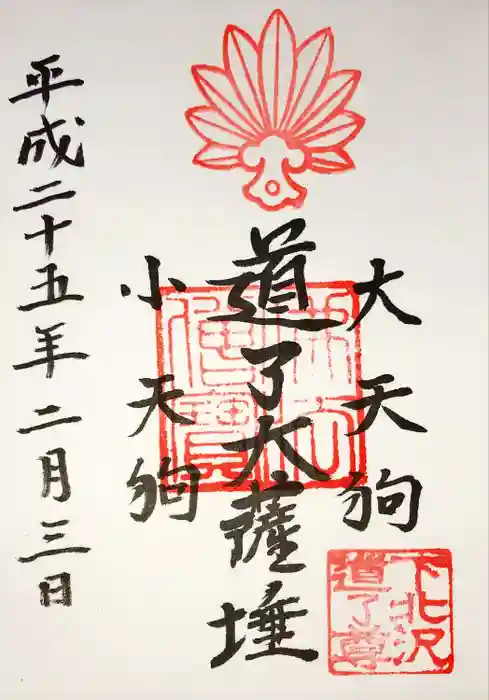 大天狗
道了大薩埵
小天狗
平成二十五年二月三日
佛法僧寶
下北沢
道了尊